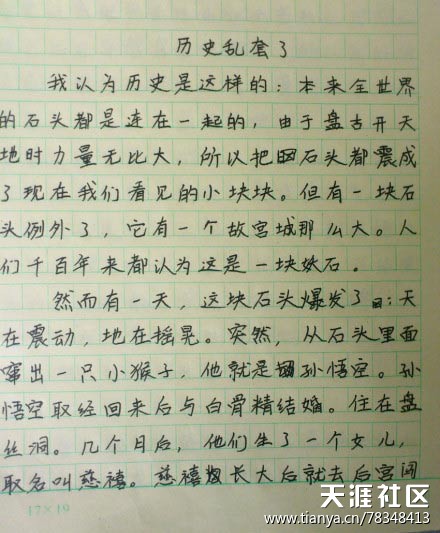 历史乱套了
我认为历史是这样的：本来全世界
的石头都是连在一起的，由于盘古开天
地时力量无比大，所以把石头都震成
了现在我们看见的小块块。但有一块石
头例外了，它有一个故宫城那么大。人
们千百年来都认为这是一块妖石。
然而有一天，这块石头爆发了：天
在震动，地在摇晃。突然，从石头里面
窜出一只小猴子，他就是孙悟空。孙
悟空取经回来后与白骨精结婚。住在盘
丝洞。几个月后，他们生了一个女儿，
取名叫慈禧。慈禧长大后就去后宫闯
17×19
天涯社区
www.tianya.cn/78348413